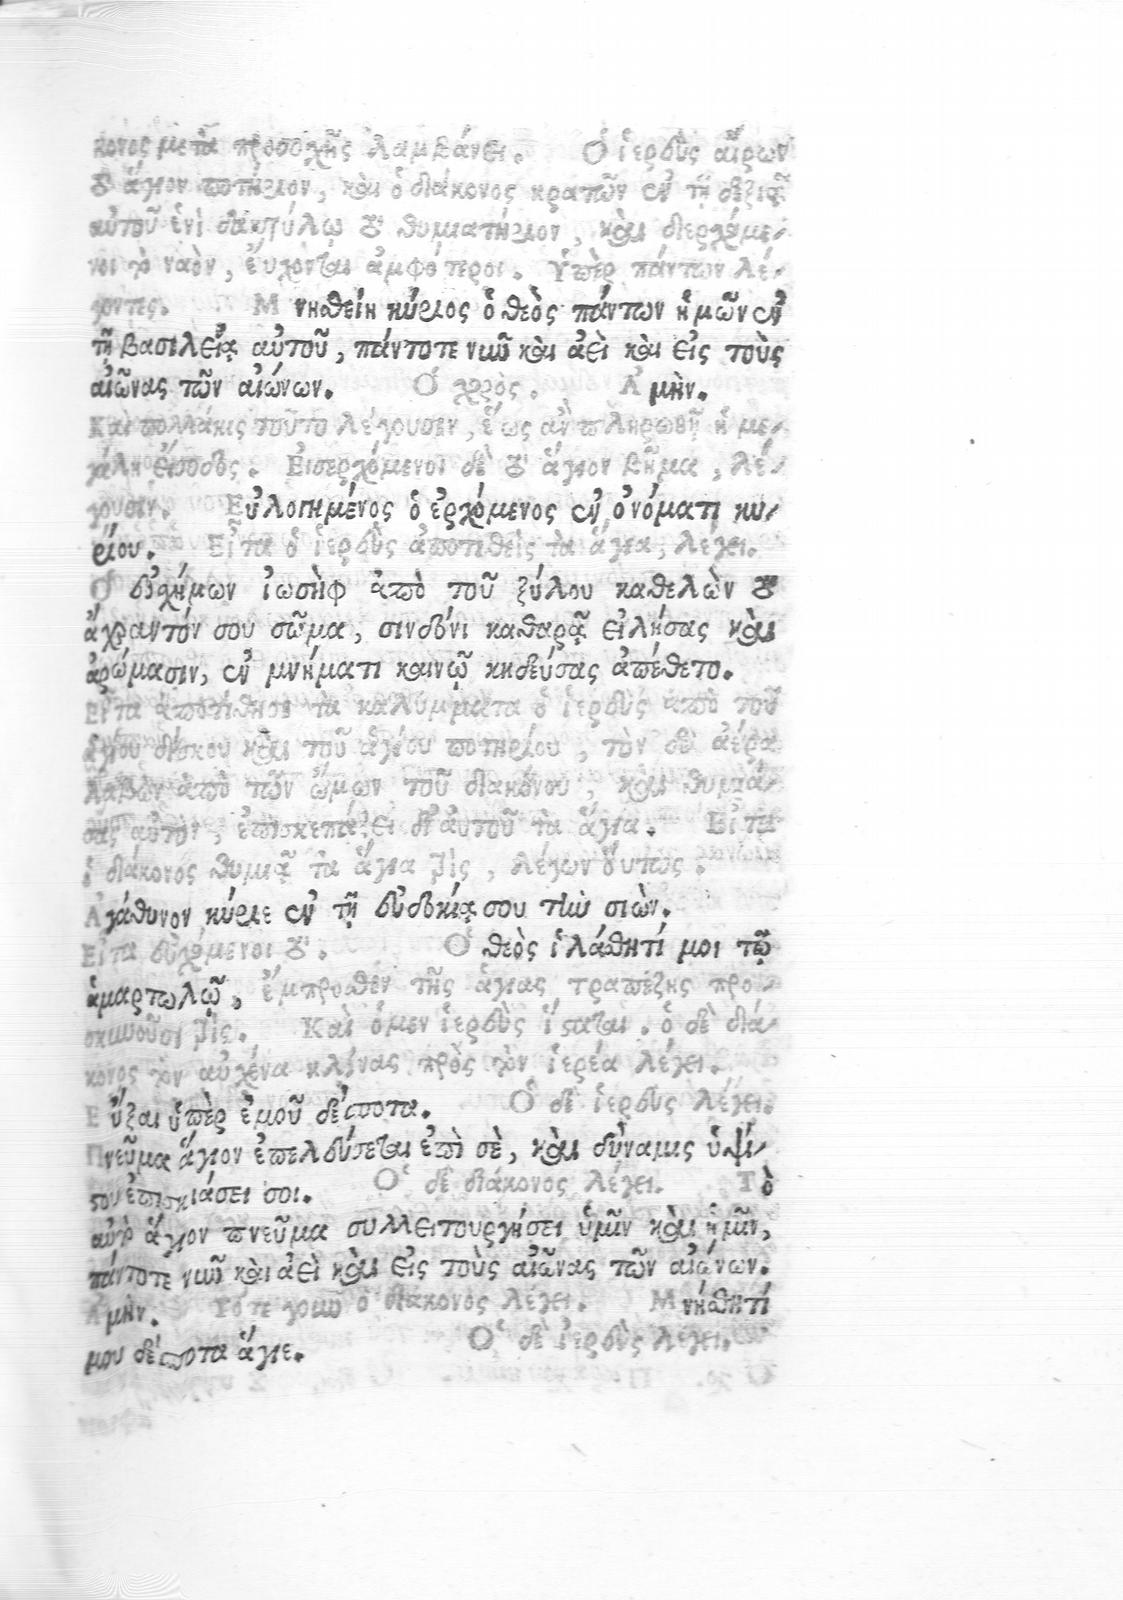 κονος μετὰ προσοχῆς λαμβάνει. Ὁ ἱερεὺς αἴρων
τὸ ἅγιον ποτήριον, καὶ ὁ διάκονος κρατῶν ἐν τῇ δεξιᾷ
αὐτοῦ ἑνὶ δακτύλῳ τὸ θυμιατήριον, καὶ διερχόμε-
νοι τὸν ναὸν, ἔυχονται ἀμφότεροι. Ὑπὲρ πάντων λέ-
γοντες. Μνηθείη κύριος ὁ θεὸς πάντων ἡμῶν ἐν
τῇ βασιλείᾳ αὐτοῦ, πάντοτε νῦν καὶ ἀεὶ καὶ εἰς τοὺς
αἰῶνας τῶν αἰώνων. Ὁ χορός. Ἀμὴν.
Καὶ πολλάκις τοῦτο λέγουσιν, ἕως ἂν πληρωθῇ ἡ με-
γάλη εἴσοδος. Εἰσερχόμενοι δὲ τὸ ἅγιον βῆμα, λέ-
γουσιν. Εὐλογημένος ὁ ἐρχόμενος ἐν ὀνόματι κυ-
ρίου. Εἶτα ὁ ἱερεὺς ἀποτιθεὶς τὰ ἅγια, λέγει.
Ὁ εὐσχήμων ἰωσὴφ ἀπὸ τοῦ ξύλου καθελὼν τὸ
ἄχραντόν σου σῶμα, σινδόνι καθαρᾷ εἰλήσας καὶ
ἀρώμασιν, ἐν μνήματι καινῷ κηδεύσας ἀπέθετο.
Εἶτα ἀποτίθησι τὰ καλύμματα ὁ ἱερεὺς ἀπὸ τοῦ
ἁγίου δίσκου καὶ τοῦ ἁγίου ποτηρίου, τὸν δὲ ἀέρα
λαβὼν ἀπὸ τῶν ὤμων τοῦ διακόνου, καὶ θυμιά-
σας αὐτὸν, ἐπισκεπάζει δι' αὐτοῦ τὰ ἅγια. Εἶτα
ὁ διάκονος θυμιᾷ τὰ ἅγια τρὶς, λέγων οὕτως.
Ἀγάθυνον κύριε ἐν τῇ εὐδοκίᾳ σου τὴν σιὼν.
Εἶτα εὐχόμενοι τό. Ὁ θεὸς ἱλάθητί μοι τῷ
ἁμαρτωλῷ, ἔμπροσθεν τῆς ἁγίας τραπέζης προ-
σκυνοῦσι τρὶς. Καὶ ὁ μεν ἱερεὺς ἵσταται. ὁ δὲ διά-
κονος τὸν αὐχένα κλίνας πρὸς τὸν ἱερέα λέγει.
Εὖξαι ὑπὲρ ἐμοῦ δέσποτα. Ὁ δὲ ἱερεὺς λέγει.
Πνεῦμα ἅγιον ἐπελεύσεται ἐπὶ σὲ, καὶ δύναμις ὑψί-
στου ἐπισκιάσει σοι. Ὁ δὲ διάκονος λέγει. Τὸ
αὐτὸ ἅγιον πνεῦμα συλλειτουργήσει ὑμῖν καὶ ἡμῖν,
πάντοτε νῦν καὶ ἀεὶ καὶ εἰς τοὺς αἰῶνας τῶν αἰώνων.
Ἀμὴν. λέγει. Μνήσθητί
μου δέσποτα ἅγιε. Ὁ δὲ ἱερεὺς λέγει.